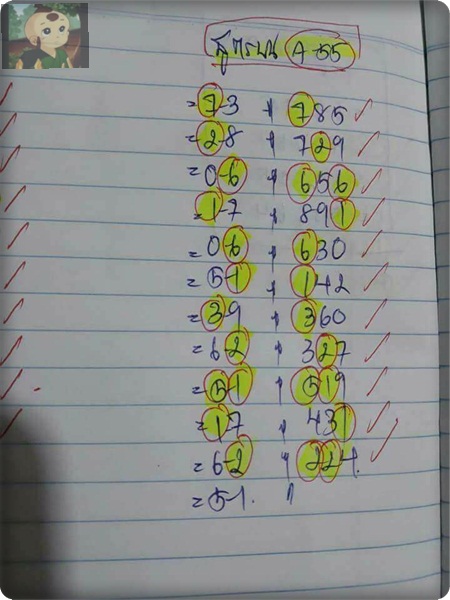 สูตรบน A-55
= 7-3 + 785 ✓
= 28 + 729 ✓
= 0-6 + 656 ✓
= 1-7 + 891 ✓
= 06 + 630 ✓
= 51 + 142 ✓
= 39 + 360 ✓
= 6-2 + 327 ✓
= 5-1 + 519 ✓
= 17 + 431 ✓
= 6-2 + 224 ✓
= 5-1.